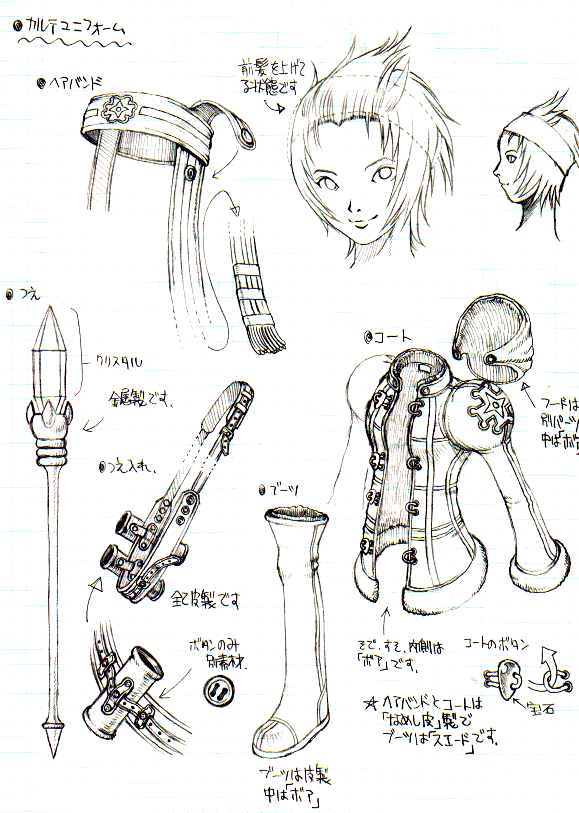 カルテユニフォーム
ヘアバンド
前髪を上げて
る状態です
つえ
クリスタル
金属製です。
つえ入れ。
全て皮製です
ボタンのみ
別素材。
ブーツ
ブーツは皮製
中は「ボア」
コート
フードは
別パーツ
中は「ボア
そで、すそ、内側は
「ボア」です。
コートのボタン
宝石
☆ヘアバンドとコートは
「なめし皮」製で
ブーツは「スエード」です。